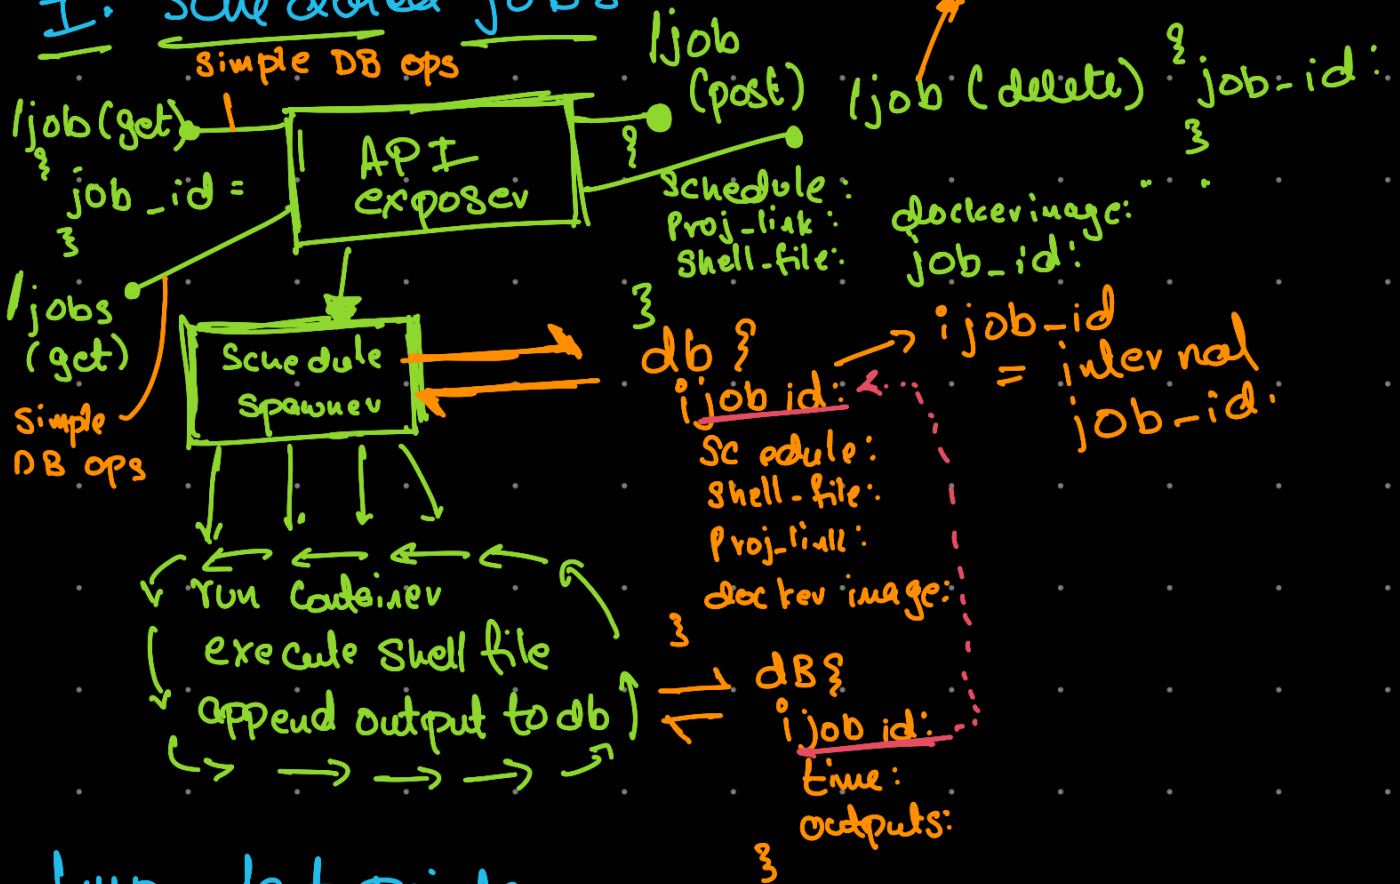 I. Scheduled jobs
simple DB ops
/job (get)
{
job_id =
}
/jobs
(get)
simple
DB ops
API
exposer
/job
(post)
{
schedule:
Proj_link:
shell-file:
dockerimage:
job_id:
}
/job (delete) {
job-id:
}
Schedule
spawner
db {
ijob id:
Sc edule:
shell-file:
Proj_link:
docker image:
}
ijob-id
= internal
job-id.
run container
execute shell file
append output to db
dB{
ijob id:
time:
outputs:
}